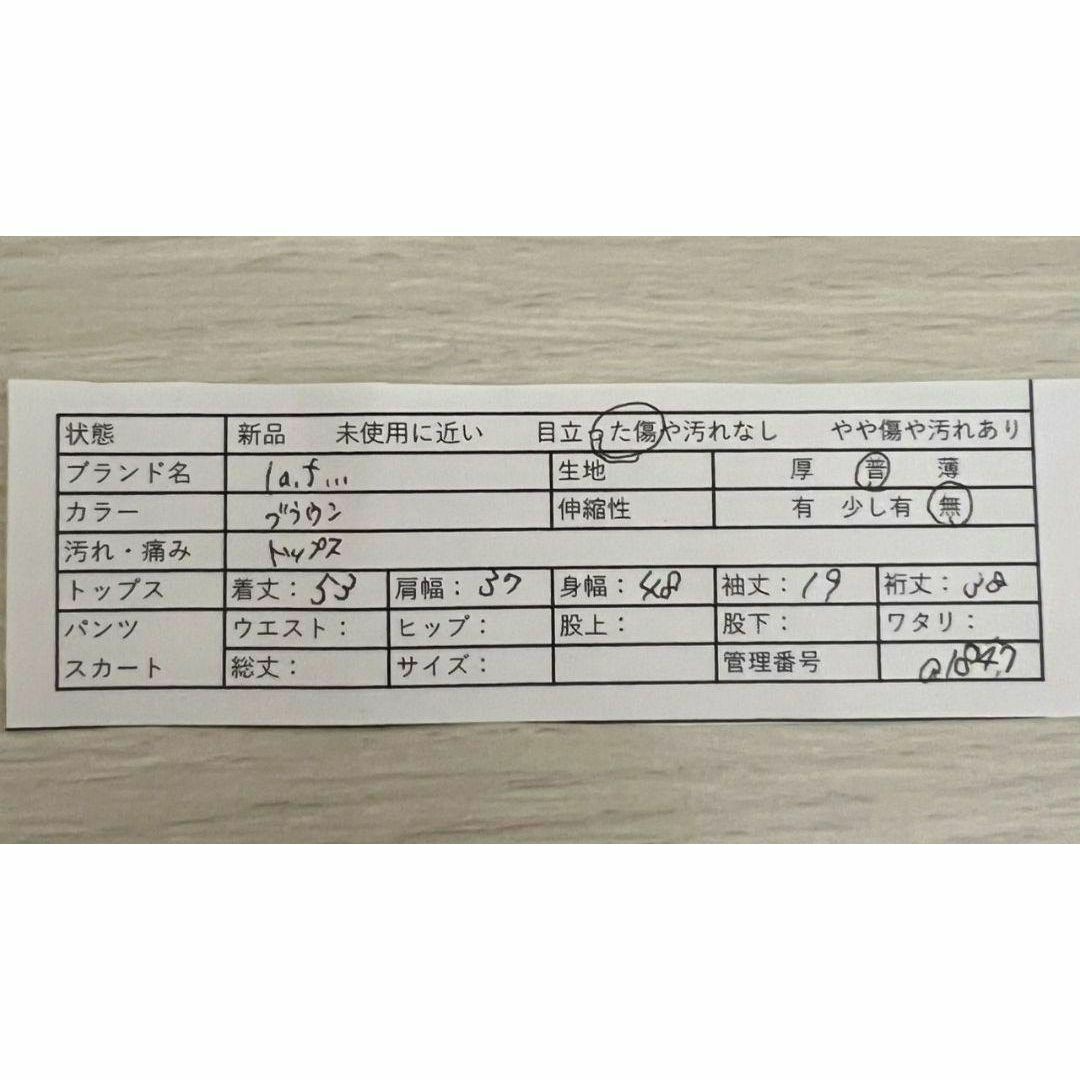 状態 新品 未使用に近い 目立った傷や汚れなし やや傷や汚れあり
ブランド名 la.f... 生地 厚 普 薄
カラー ブラウン 伸縮性 有 少し有 無
汚れ・痛み トップス
トップス 着丈：53 肩幅：37 身幅：48 袖丈：19 裄丈：38
パンツ ウエスト： ヒップ： 股上： 股下： ワタリ：
スカート 総丈： サイズ： 管理番号